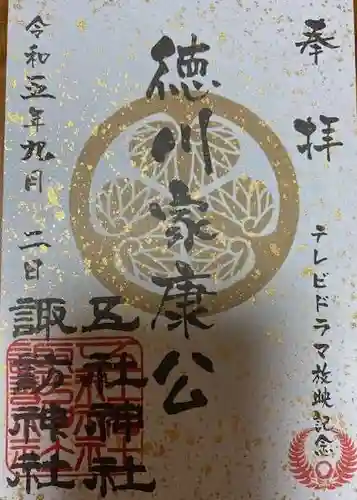 奉拝
テレビドラマ放映記念
徳川家康公
五社神社
諏訪神社
令和五年九月二日